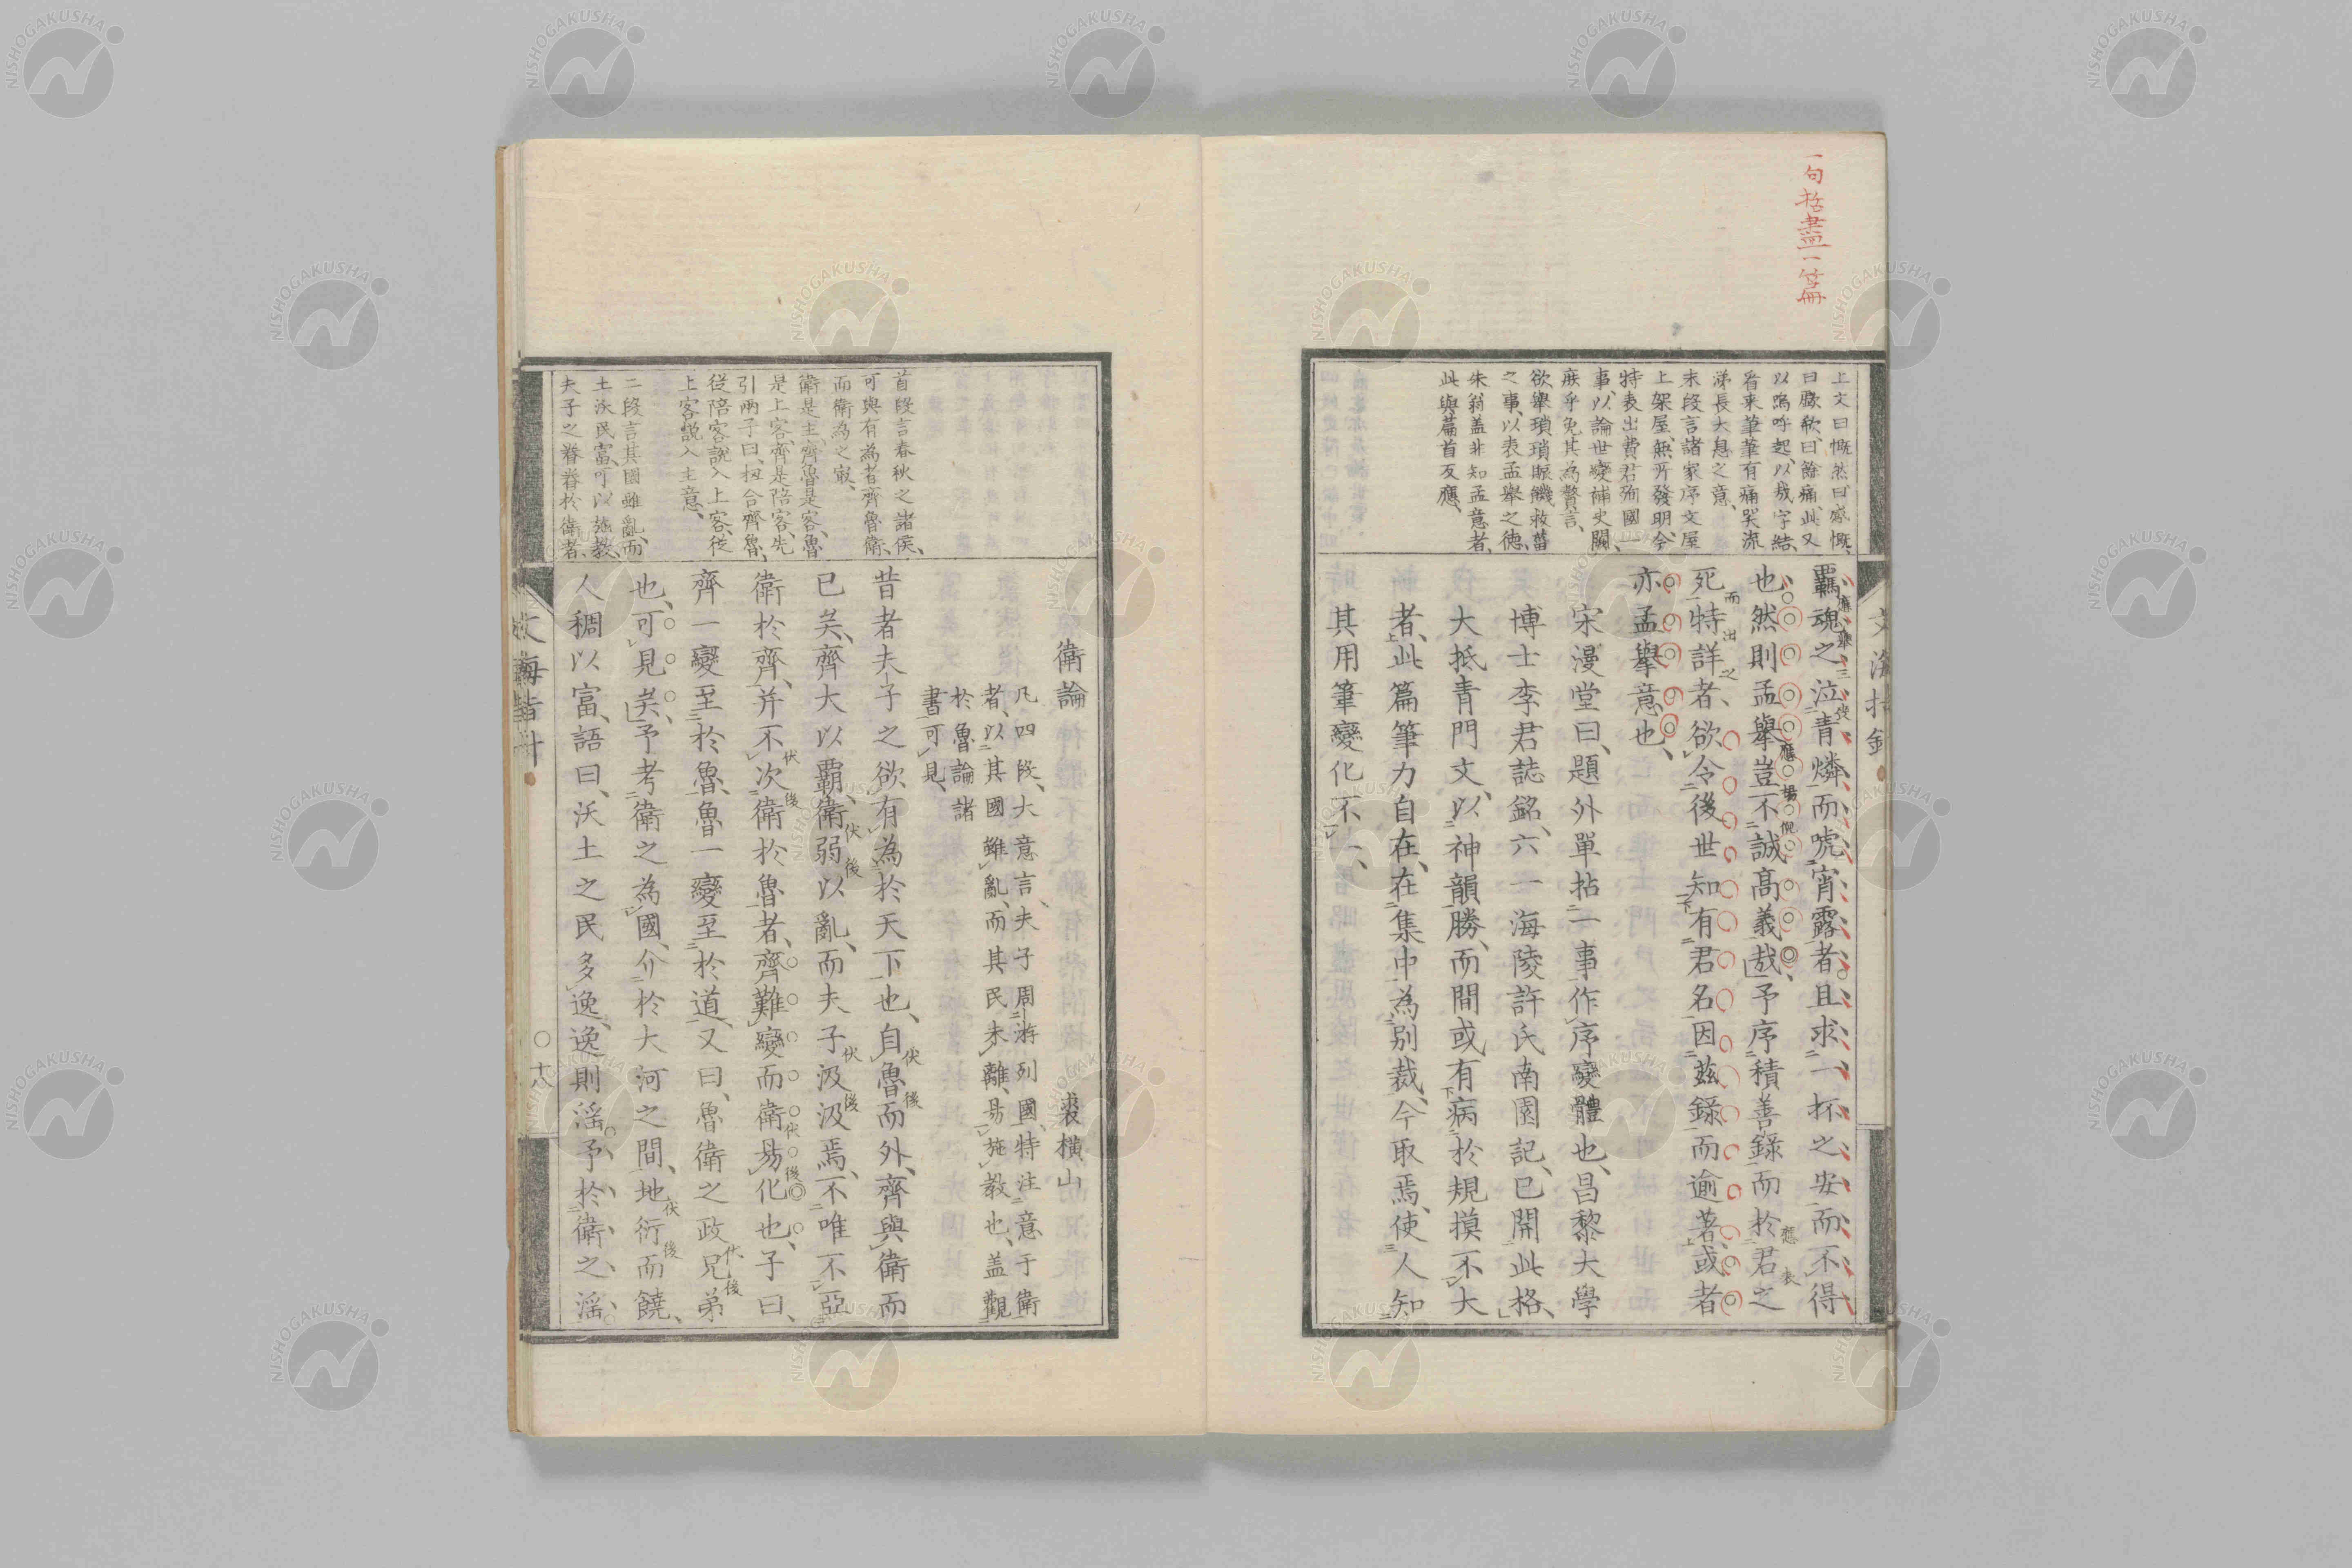 一句括盡一篇
上文曰慨然曰感慨、
曰歔欷、曰餘痛、此又
以嗚呼起、以哉字結、
看来筆筆有痛哭流
涕長大息之意、
末段言諸家序文屋
上架屋、無所發明、今
特表出費君殉國一
事、以論世變補史闕、
庶乎免其為贅言、
欲舉瑣瑣賑饑救菑
之事、以表孟舉之德、
朱翁盖非知孟意者、
此與篇首反應、
羈魂之泣青燐而號宵露者且求一抔之安而不得
也然則孟舉豈不誠髙義哉、予序積善錄而於君之
死特詳者、欲令後世知有君名因茲錄而逾著、或者
亦孟舉意也、
宋漫堂曰、題外單拈一事作序變體也、昌黎大學
博士李君誌銘、六一海陵許氏南園記、已開此格、
大抵青門文、以神韻勝、而間或有病於規摸不大
者、此篇筆力自在、在集中為別裁、今取焉、使人知
其用筆變化不一、
首段言春秋之諸侯、
可與有為者齊魯衛、
而衛為之㝡、
衛是主、齊魯是客、魯
是上客、齊是陪客、先
引兩子曰、扭合齊魯、
從陪客說入上客、從
上客說入主意、
二段言其國雖亂、而
土沃民富、可以施教、
夫子之眷眷於衛者、
衛論 裘橫山
凡四段、大意言、夫子周游列國、特注意于衛
者、以其國雖亂、而其民未離、易施教也、盖觀
於魯論諸
書可見、
昔者夫子之欲有為於天下也、自魯而外、齊與衛而
已矣、齊大以覇、衛弱以亂、而夫子汲汲焉、不唯不亞
衛於齊、并不次衛於魯者、齊難變而衛易化也、子曰、
齊一變至於魯、魯一變至於道、又曰、魯衛之政兄弟
也、可見矣、予考衛之為國、介於大河之間、地衍而饒、
人稠以富、語曰、沃土之民多逸、逸則淫、予於衛之淫、
十八